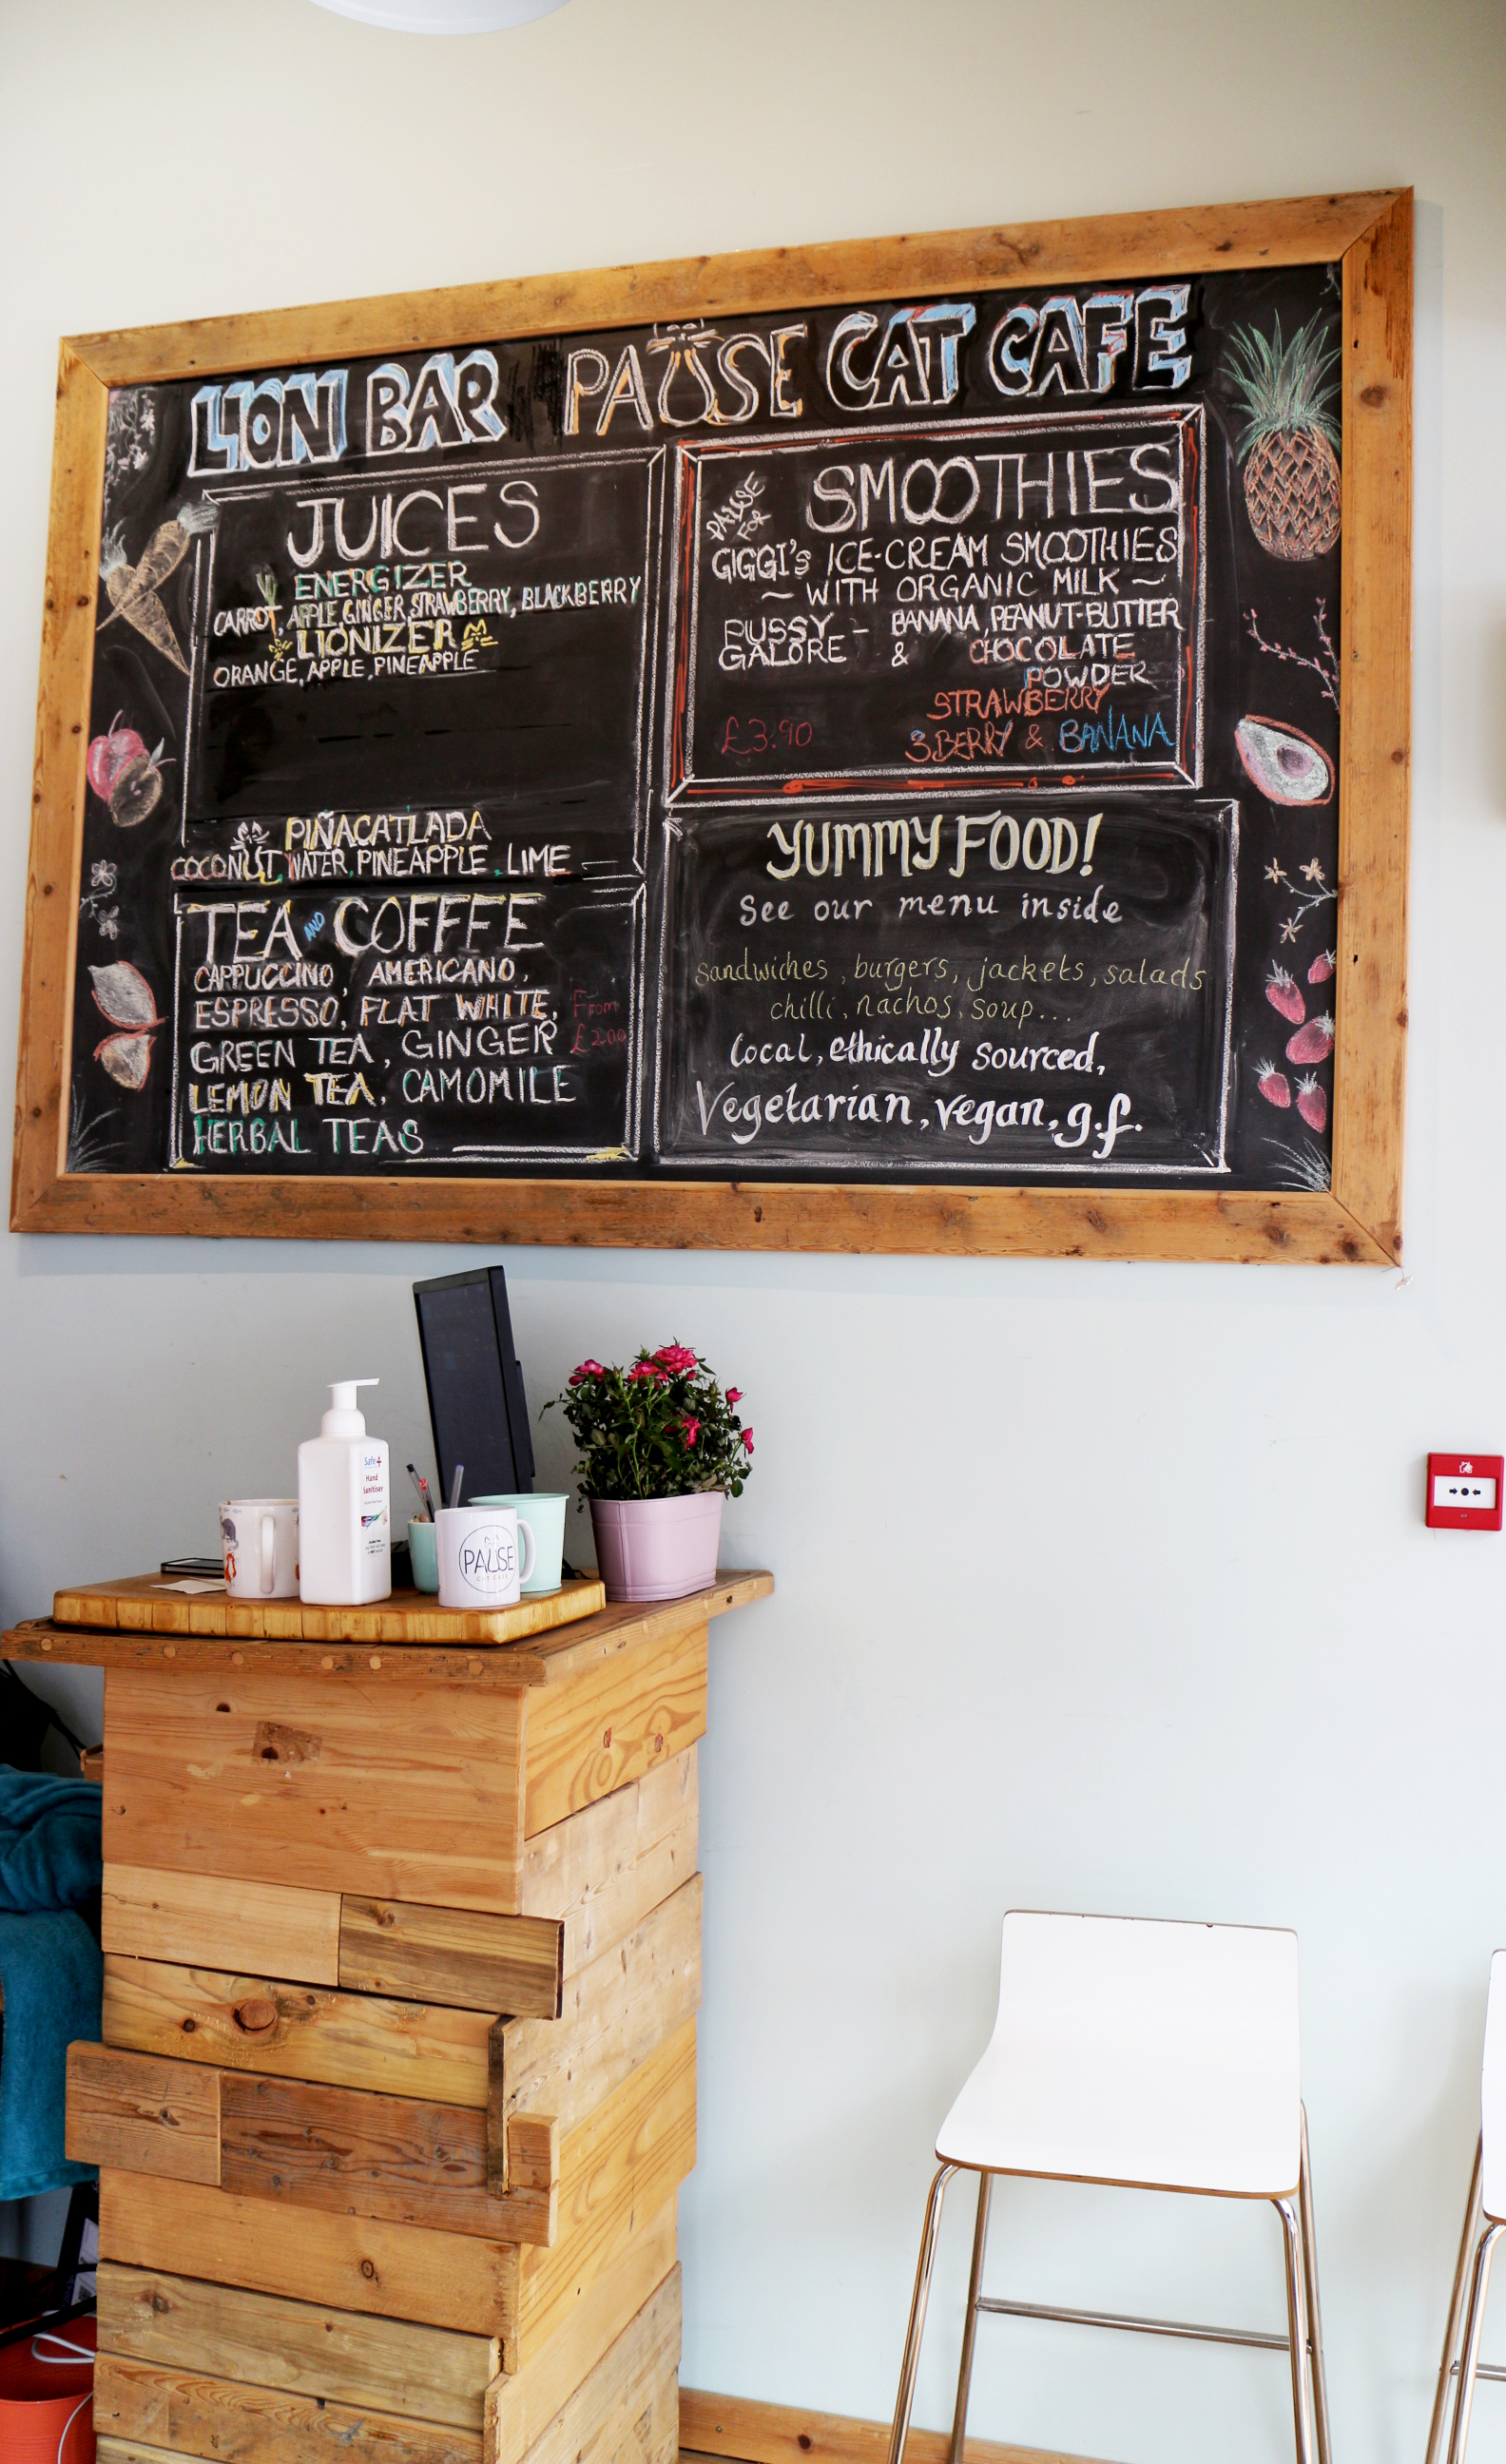 LION BAR PAUSE CAT CAFE
JUICES
ENERGIZER
CARROT, APPLE, GINGER, STRAWBERRY, BLACKBERRY
LIONIZER
ORANGE, APPLE, PINEAPPLE
PIÑACATLADA
COCONUT, WATER, PINEAPPLE, LIME
TEA AND COFFEE
CAPPUCCINO, AMERICANO,
ESPRESSO, FLAT WHITE,
From
£2.00
GREEN TEA, GINGER
LEMON TEA, CAMOMILE
HERBAL TEAS
PAUSE
FOR
SMOOTHIES
GIGGI'S ICE-CREAM SMOOTHIES
~ WITH ORGANIC MILK ~
PUSSY GALORE - BANANA, PEANUT-BUTTER
& CHOCOLATE
POWDER
STRAWBERRY
£3.90
3.BERRY & BANANA
YUMMY FOOD!
See our menu inside
Sandwiches, burgers, jackets, salads
chilli, nachos, soup...
local, ethically sourced,
Vegetarian, vegan, g.f.
Safe 4
Hand
Sanitiser
PAUSE
CAT CAFE